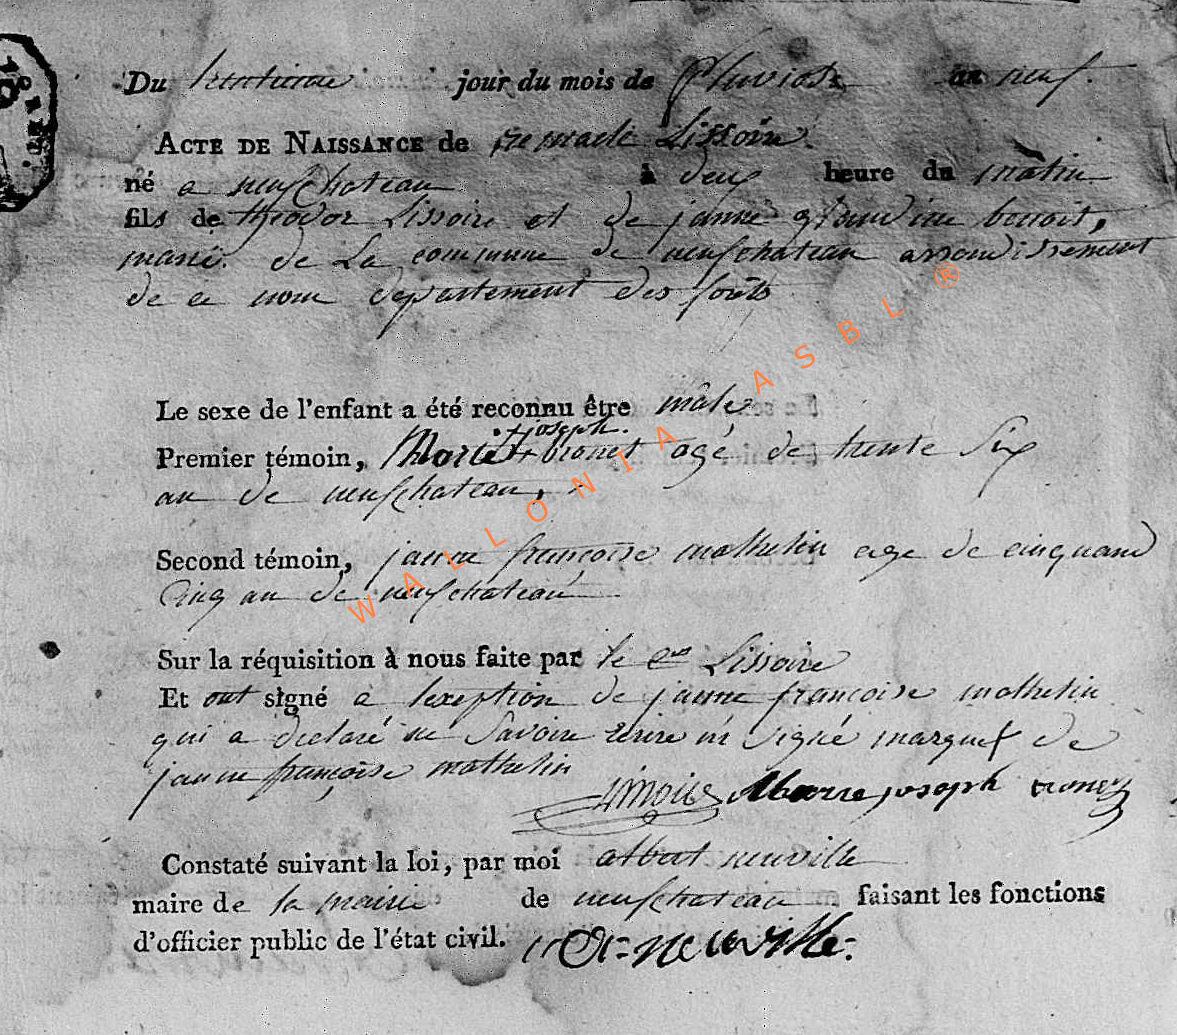 Du trentieme jour du mois de Pluviose an neuf.
ACTE DE NAISSANCE de remacle Lissoire.
né a neufchateau à deux heure du matin
fils de theodor Lissoire et de janne benoit,
mariė. de La commune de neufchateau arrondissement
de ce nom departement des forêts
Le sexe de l'enfant a été reconnu être mâle
joseph.
Premier témoin, agé de trente Six
an de neufchateau,
Second témoin, janne françoise mathelin age de cinquand
Cinq an de neufchateau
Sur la réquisition à nous faite par le Lissoire
Et ont signé a lexeption de janne françoise mathelin
qui a declaré ne Savoire Ecrire ni signé marque de
janne françoise mathelin
joseph
Constaté suivant la loi, par moi albert neuville
maire de la mairie de neufchateau faisant les fonctions
d'officier public de l'état civil. A = neuville
WALLONIA ASBL ®